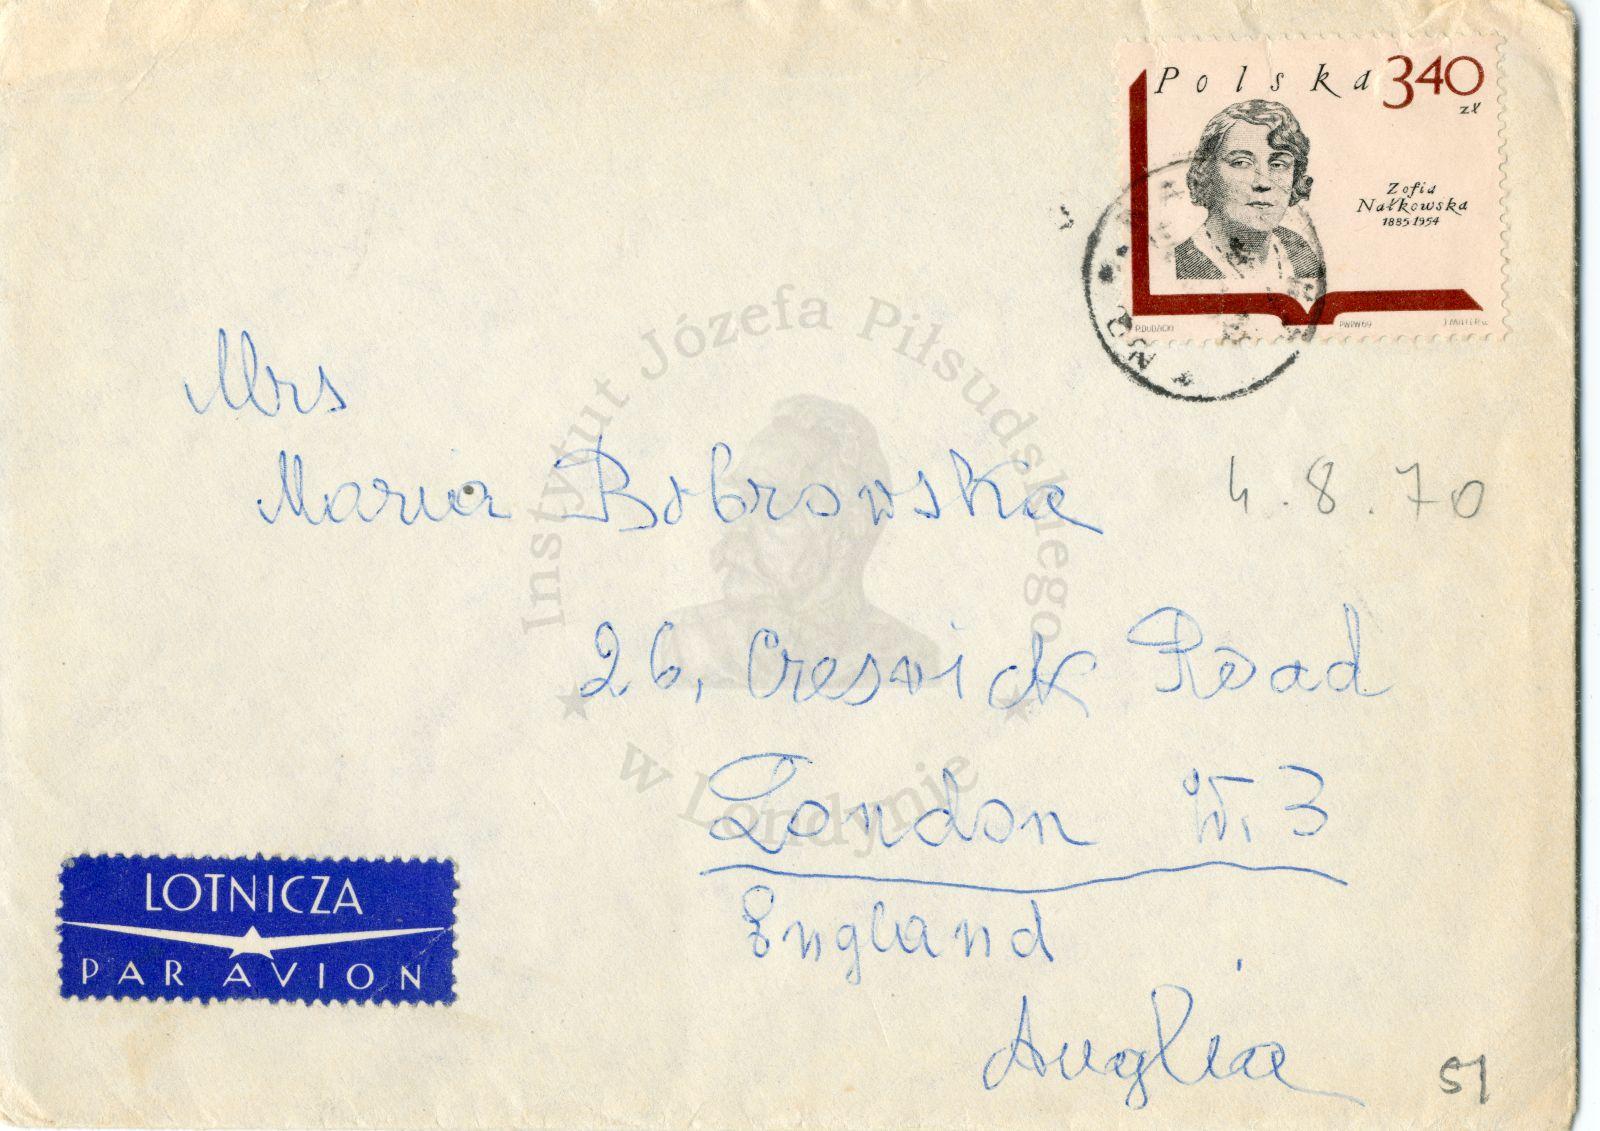 Polska 340
zł
Zofia
Nałkowska
1885-1954
P.DUDZICKI PWPW69 J.MILLER sc.
Instytut Józefa Piłsudskiego
w Londynie
Mrs
Maria Bobrowska
4.8.70
26, Creswick Road
London W.3
England
Anglia
LOTNICZA
PAR AVION
51